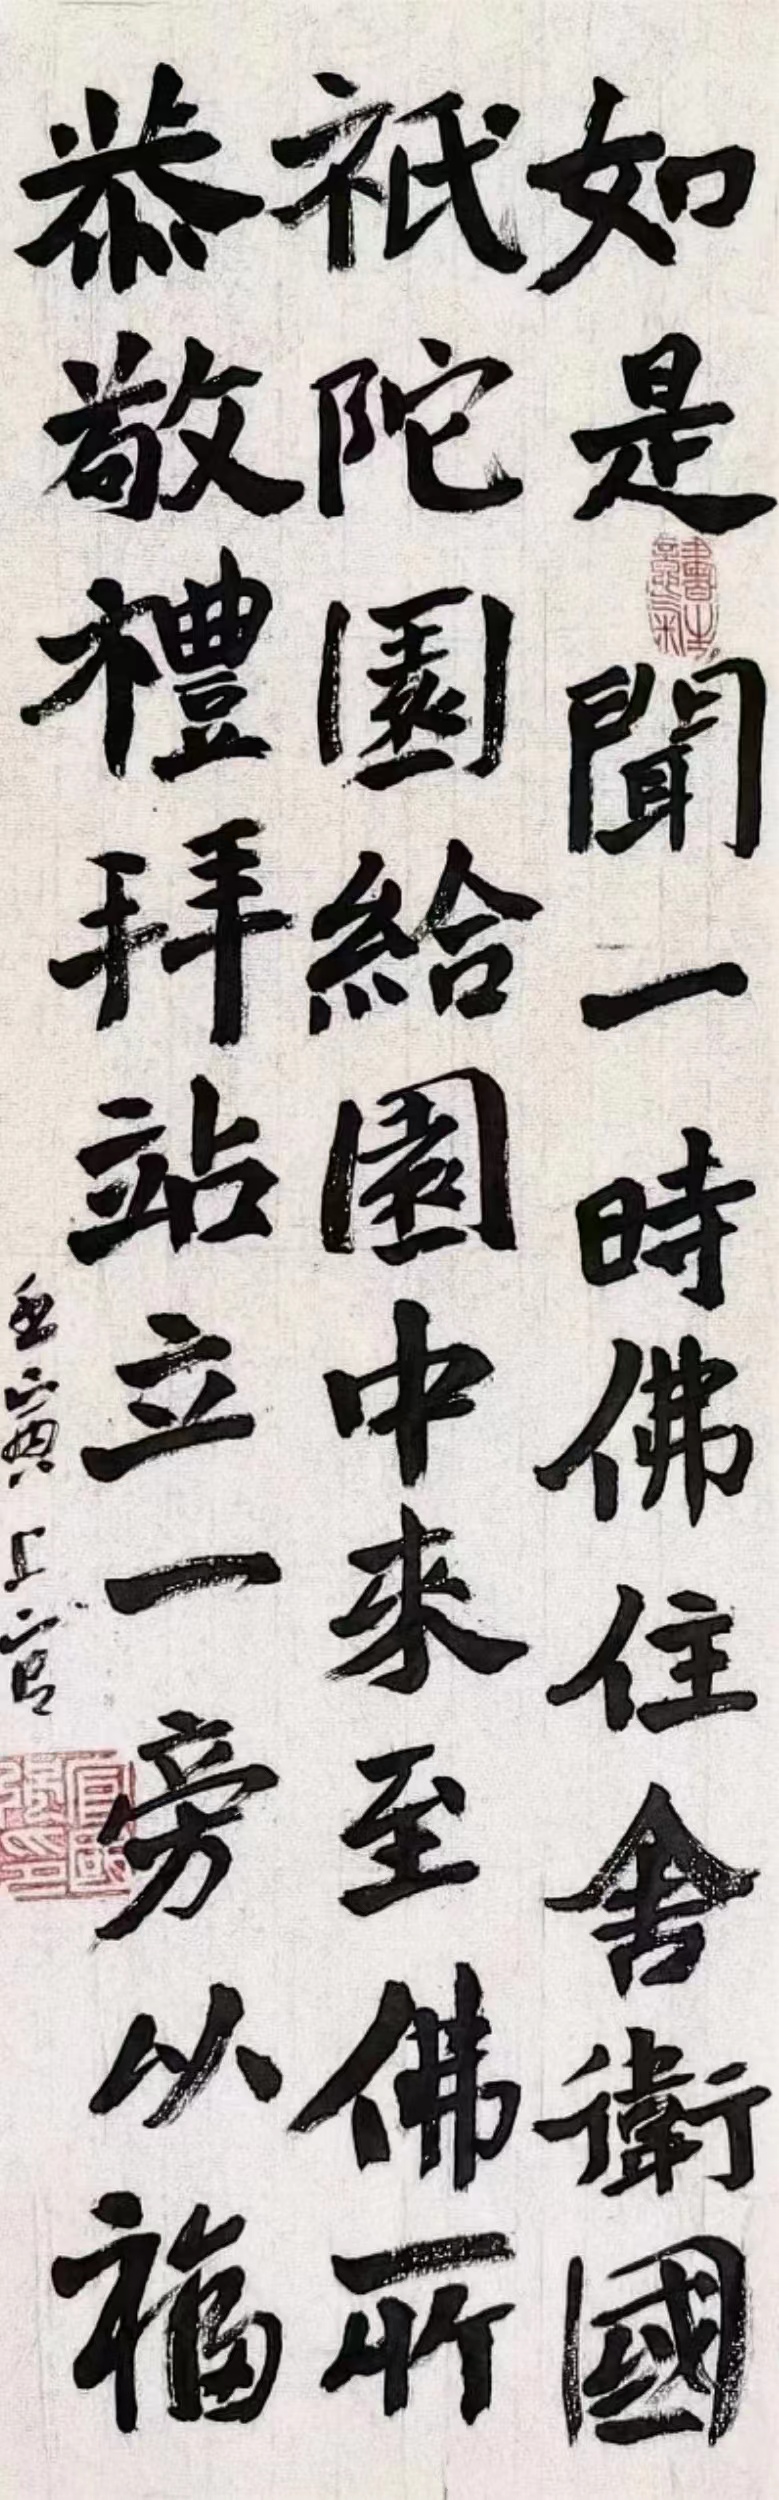 如是聞一時佛住舍衛國
祇陀園給園中來至佛所
恭敬禮拜站立一旁以福
壬寅上官